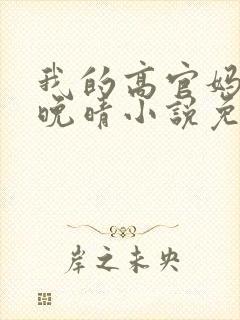 我的高官妈
晚晴小说免
岸之未央